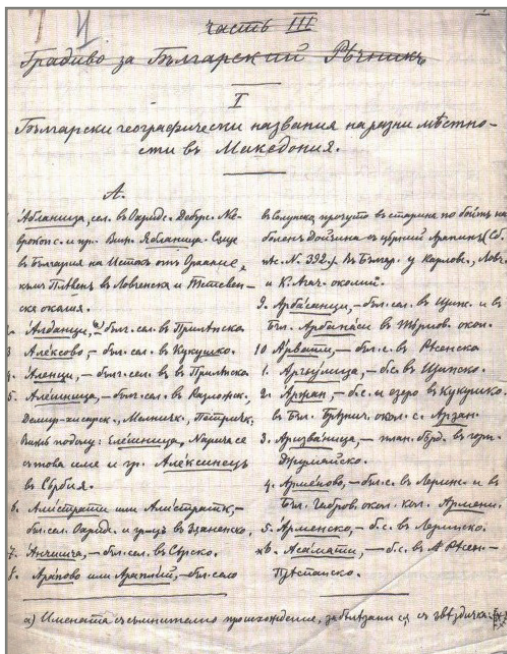 часть III
Градиво за Български Рѣчникъ
I
Български географически названия на разни мѣстно-
сти въ Македония.
А.
Абланица, сел. въ Охридс. Дебрс. Не-
врокопс. и пр. Виж. Ябланица. Също
въ България на Исток отъ Орхание,
къмъ Плѣвенъ въ Ловченска и Тетевен-
ска околия.
Алданци, бъл. сел. въ Прилѣпско
3 Алексово, – бъл. сел. въ Кукушко.
4. Аленци, – бълг. сел. въ Прилѣпско
5. Алешница, – бълг. сел. въ Разложк.,
Демир-хисарск., Мелничк., Петричк.
Виж подолу: Елешница, Нарича се
име и гр. Алексинецъ
въ Сърбия.
6. Алистрати или Алистратик, –
бъл. сел. Охрид. и въ Зъхненско,
7. Анчища, – бъл. сел. въ Сѣрско.
8. Арапово или Араплий, – бъл. село
въ Солунско, прочуто въ старине по бойтъ на
боленъ Дойчина съ църний Арапинъ (Сб.
Ас. № 392.) Въ Българ. у Карловс., Ловч.
и К. Агач. околий.
9. Арбанаци, – бъл. сел. въ Щип. и въ
Бъл. Арбанаси въ Търнов. окол.
10 Арвати, – бъл. с. въ Рѣсенско
1. Аргулица, – б. с. въ Щипско.
2. Арджан, – б. с. и езеро въ Кукушко
въ Бъл. окол. с. Арзан.
3. Аризваница, – план. бърд. въ горн.
Джумайско.
4. Арменово, – бъл. с. въ Лерин. и въ
Бъл. Габров. окол. кол. Армени.
5. Арменско, – б. с. въ Леринско.
6. Асамати, – б. с. въ Рѣсен-
Прѣспанско.
а) Имената съ съмнително происхождение, забѣлѣзани сѫ съ звѣздичка